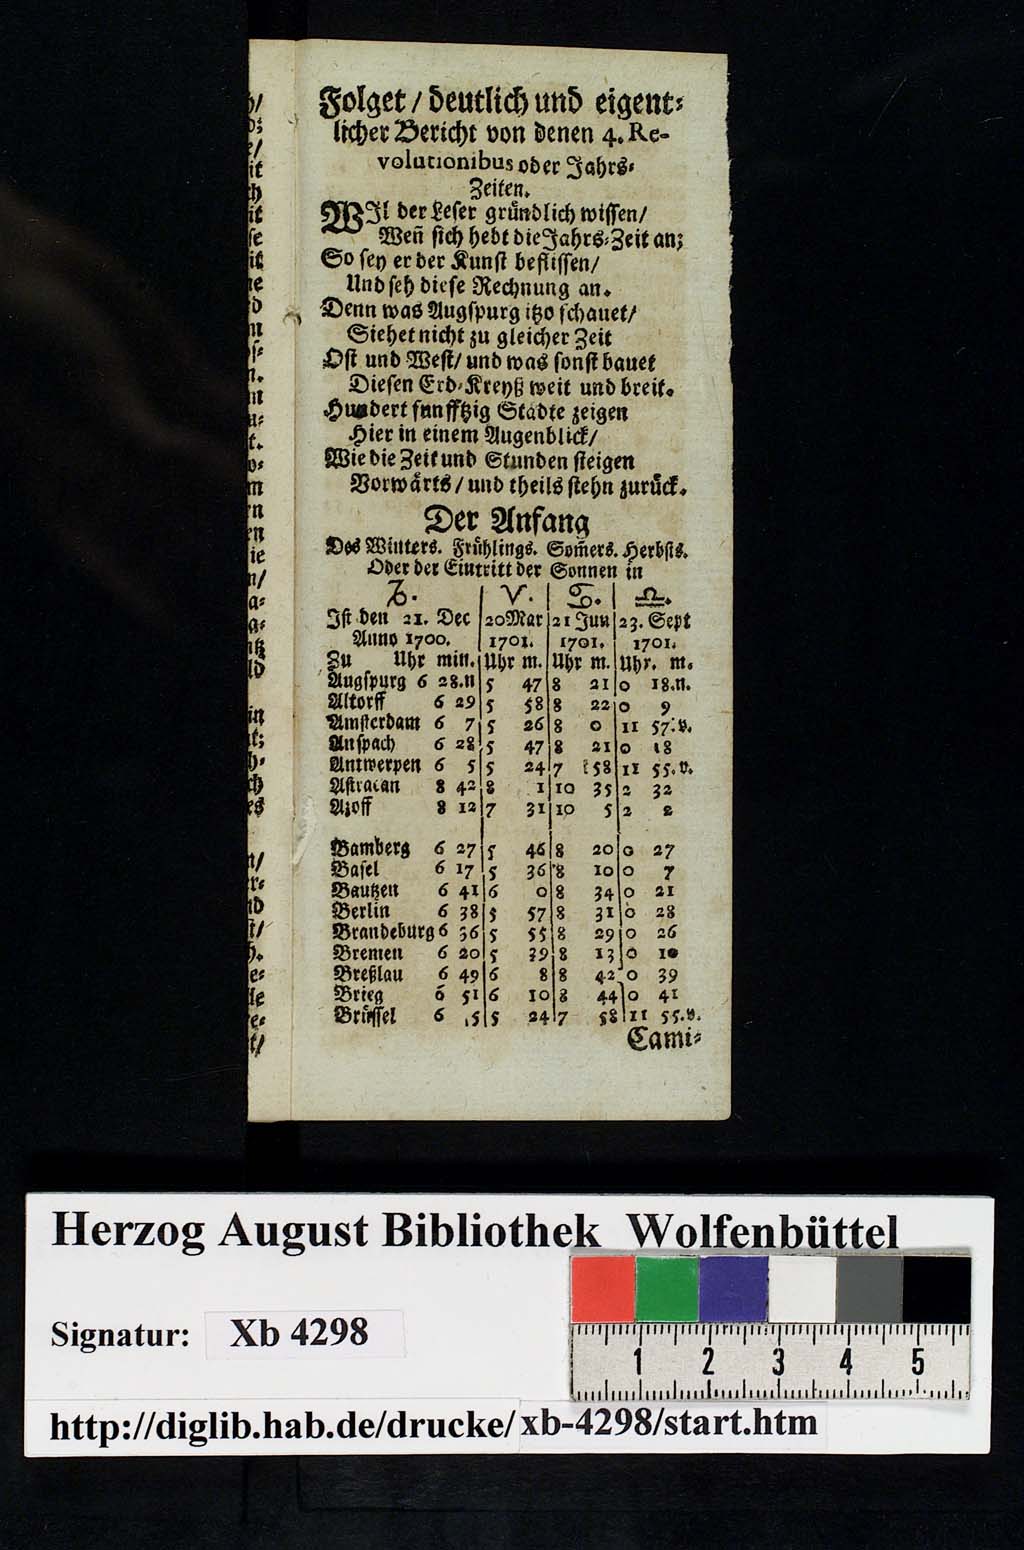 Folget / deutlich und eigent⸗
licher Bericht von denen 4. Re-
volutionibus oder Jahrs⸗
Zeiten.
WIl der Leser gründlich wissen/
Weñ sich hebt die Jahrs⸗Zeit an;
So sey er der Kunst beflissen/
Und seh diese Rechnung an.
Denn was Augspurg itzo schauet/
Siehet nicht zu gleicher Zeit
Ost und West/ und was sonst bauet
Diesen Erd⸗Kreyß weit und breit.
Hundert funfftzig Städte zeigen
Hier in einem Augenblick/
Wie die Zeit und Stunden steigen
Vorwärts / und theils stehn zurück.
Der Anfang
Des Winters. Frühlings. Som̃ers. Herbsts.
Oder der Eintritt der Sonnen in
♑. ♈. ♋. ♎.
Ist den 21. Dec 20 Mar 21 Jun 23. Sept
Anno 1700. 1701. 1701. 1701.
Zu Uhr min. Uhr m. Uhr m. Uhr. m.
Augspurg 6 28.N 5 47 8 21 0 18.N.
Altorff 6 29 5 58 8 22 0 9
Amsterdam 6 7 5 26 8 0 11 57.V.
Anspach 6 28 5 47 8 21 0 18
Antwerpen 6 5 5 24 7 58 11 55.V.
Astracan 8 42 8 1 10 35 2 32
Azoff 8 12 7 31 10 5 2 2
Bamberg 6 27 5 46 8 20 0 27
Basel 6 17 5 36 8 10 0 7
Bautzen 6 41 6 0 8 34 0 21
Berlin 6 38 5 57 8 31 0 28
Brandeburg 6 36 5 55 8 29 0 26
Bremen 6 20 5 39 8 13 0 10
Breßlau 6 49 6 8 8 42 0 39
Brieg 6 51 6 10 8 44 0 41
Brüssel 6 5 5 24 7 58 11 55.V.
Cami⸗
Herzog August Bibliothek Wolfenbüttel
Signatur: Xb 4298
1 2 3 4 5
http://diglib.hab.de/drucke/xb-4298/start.htm